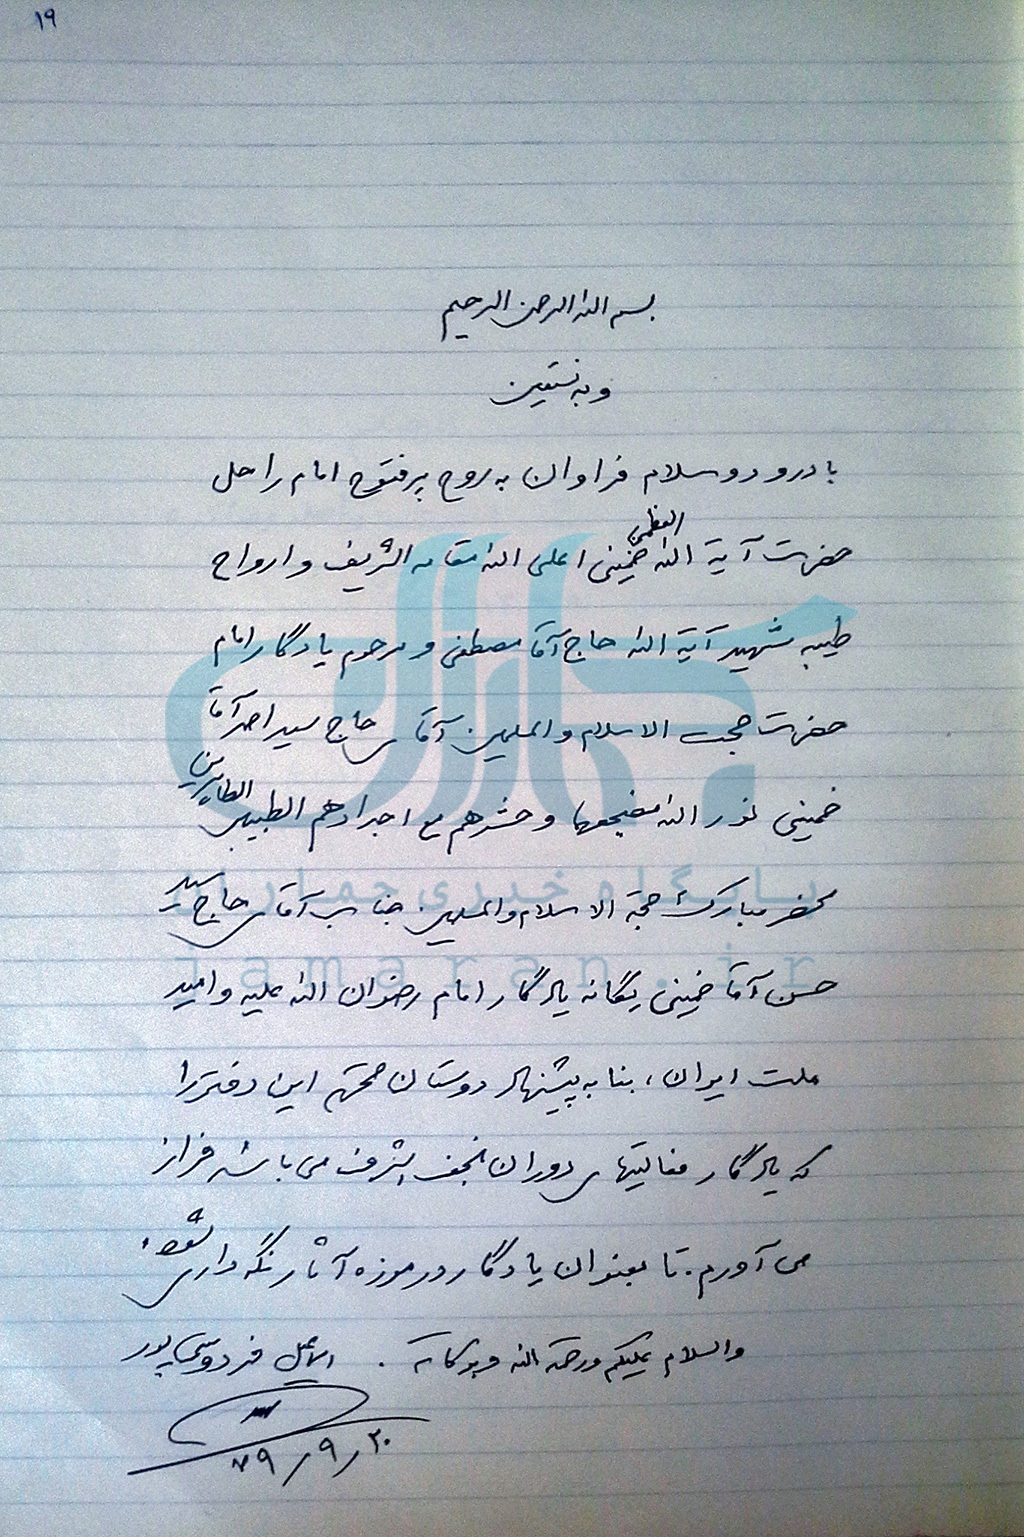 ۱۹
بسم الله الرحمن الرحیم
و به نستعین
با درود و سلام فراوان به روح پرفتوح امام راحل
حضرت آیة الله العظمی خمینی اعلی الله مقامه الشریف و ارواح
طیبه شهید آیة الله حاج آقا مصطفی و مرحوم یادگار امام
حضرت حجت الاسلام والمسلمین آقای حاج سید احمد آقا
خمینی نور الله مضجعهما و حشرهم مع اجدادهم الطیبین الطاهرین
محضر مبارک حجة الاسلام والمسلمین جناب آقای حاج سید
حسن آقا خمینی یگانه یادگار امام رضوان الله علیه و امید
ملت ایران، بنا به پیشنهاد دوستان محترم این دفتر را
که یادگار فعالیتهای دوران نجف اشرف می باشد فراز
می آورم. تا بعنوان یادگار در موزه آثار نگه داری شود.
والسلام علیکم ورحمة الله وبرکاته . اسماعیل فردوسی پور
۷۹/۹/۲۰
جماران
پایگاه خبری جماران
jamaran.ir